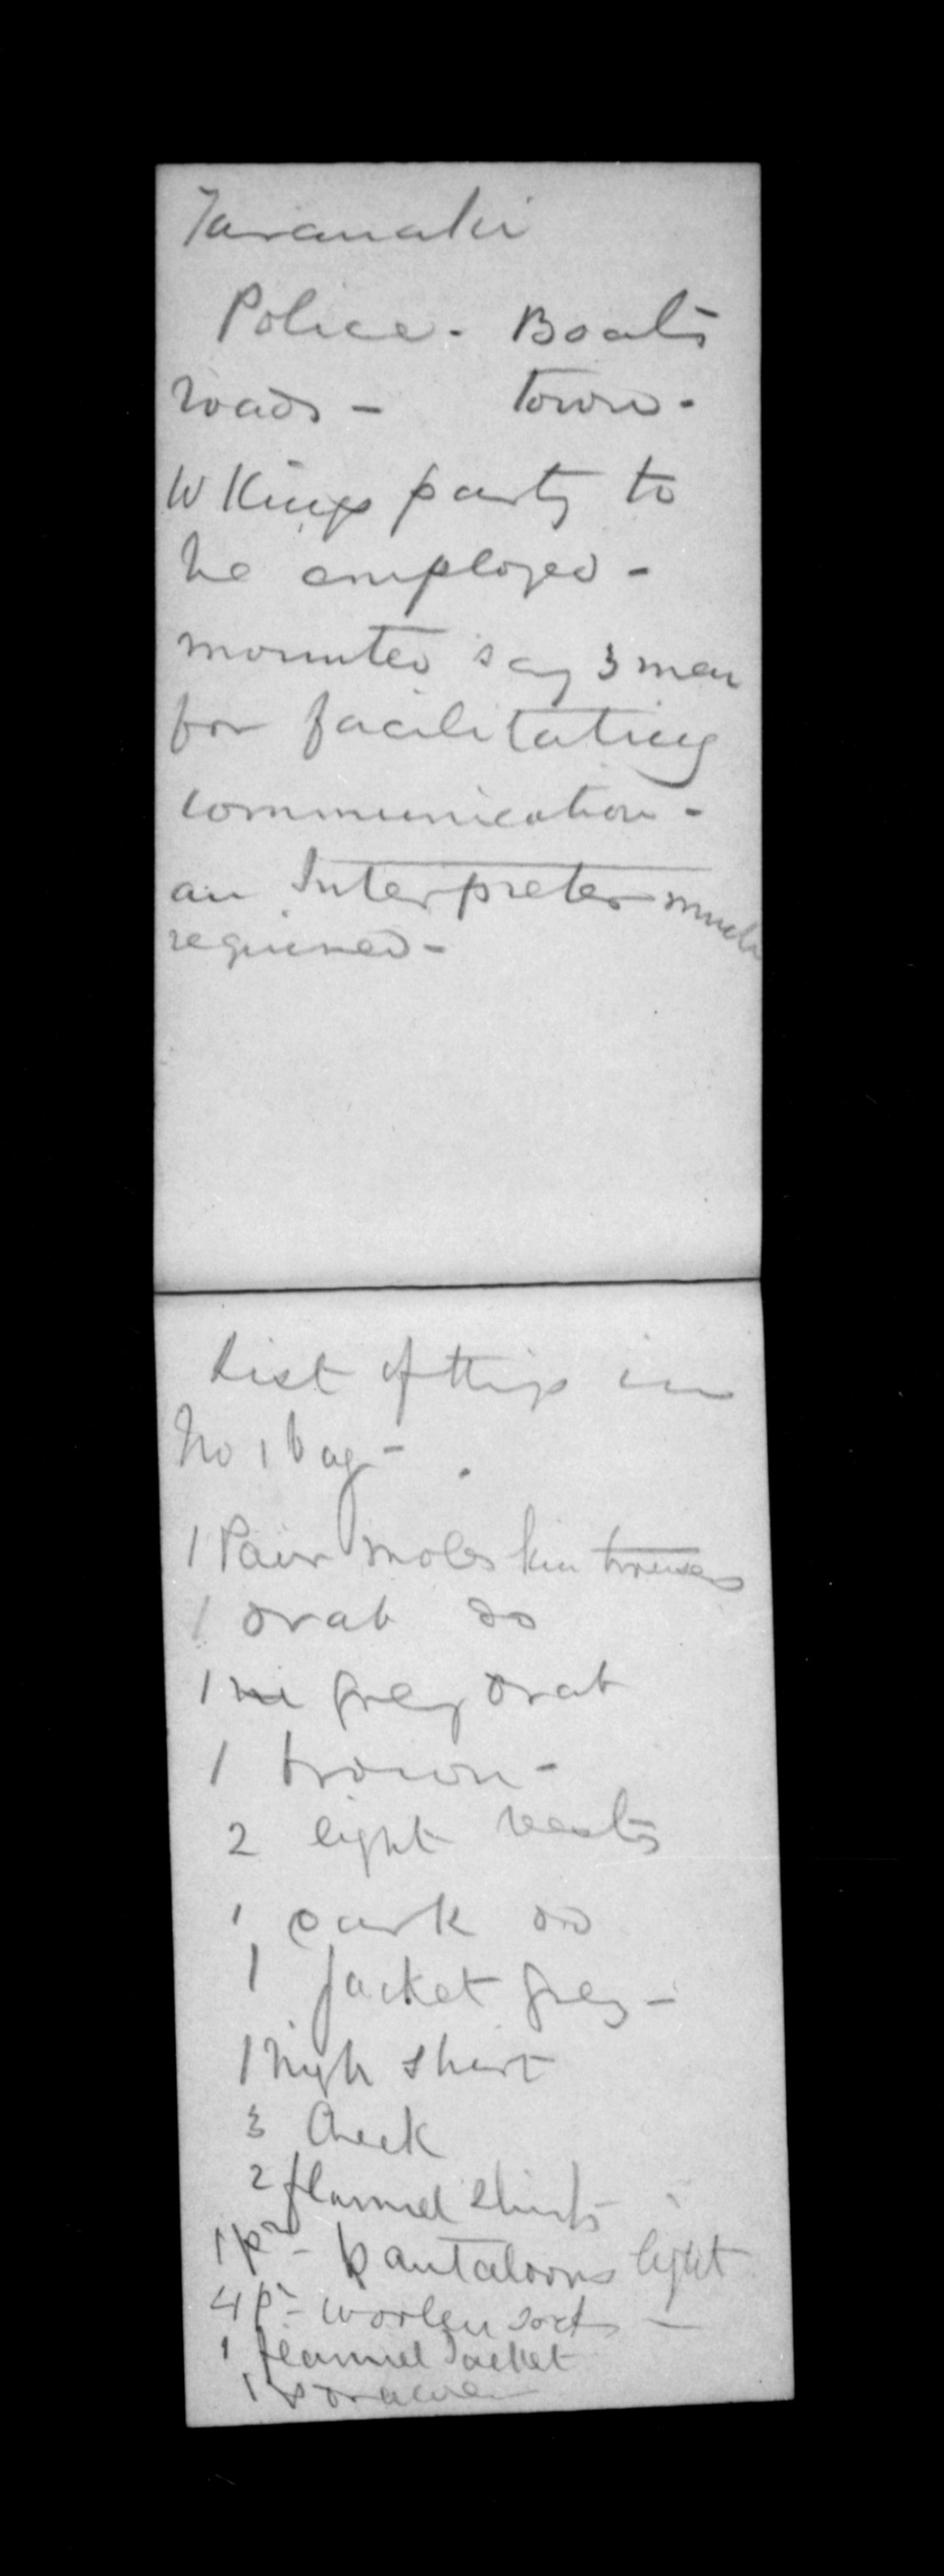 Taranaki
Police - Boats
roads - Town -
W Kings party to
be employed -
mounted say 3 men
for facilitating
communication -
an Interpreter much
required -
List of things in
No 1 bag -
1 Pair moleskin trousers
1 drab do
1 grey drab
1 brown -
2 light vests
1 dark do
1 Jacket grey -
1 high shirt
3 Check
2 flannel shirts
1 pr - pantaloons light
4 pr - woolen socks -
1 flannel Jacket
1 drawers